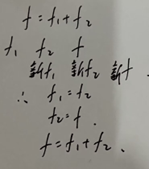 f=f₁+f₂
f₁ f₂ f
新f₁ 新f₂ 新f
∴ f₁=f₂
f₂=f.
f=f₁+f₂.